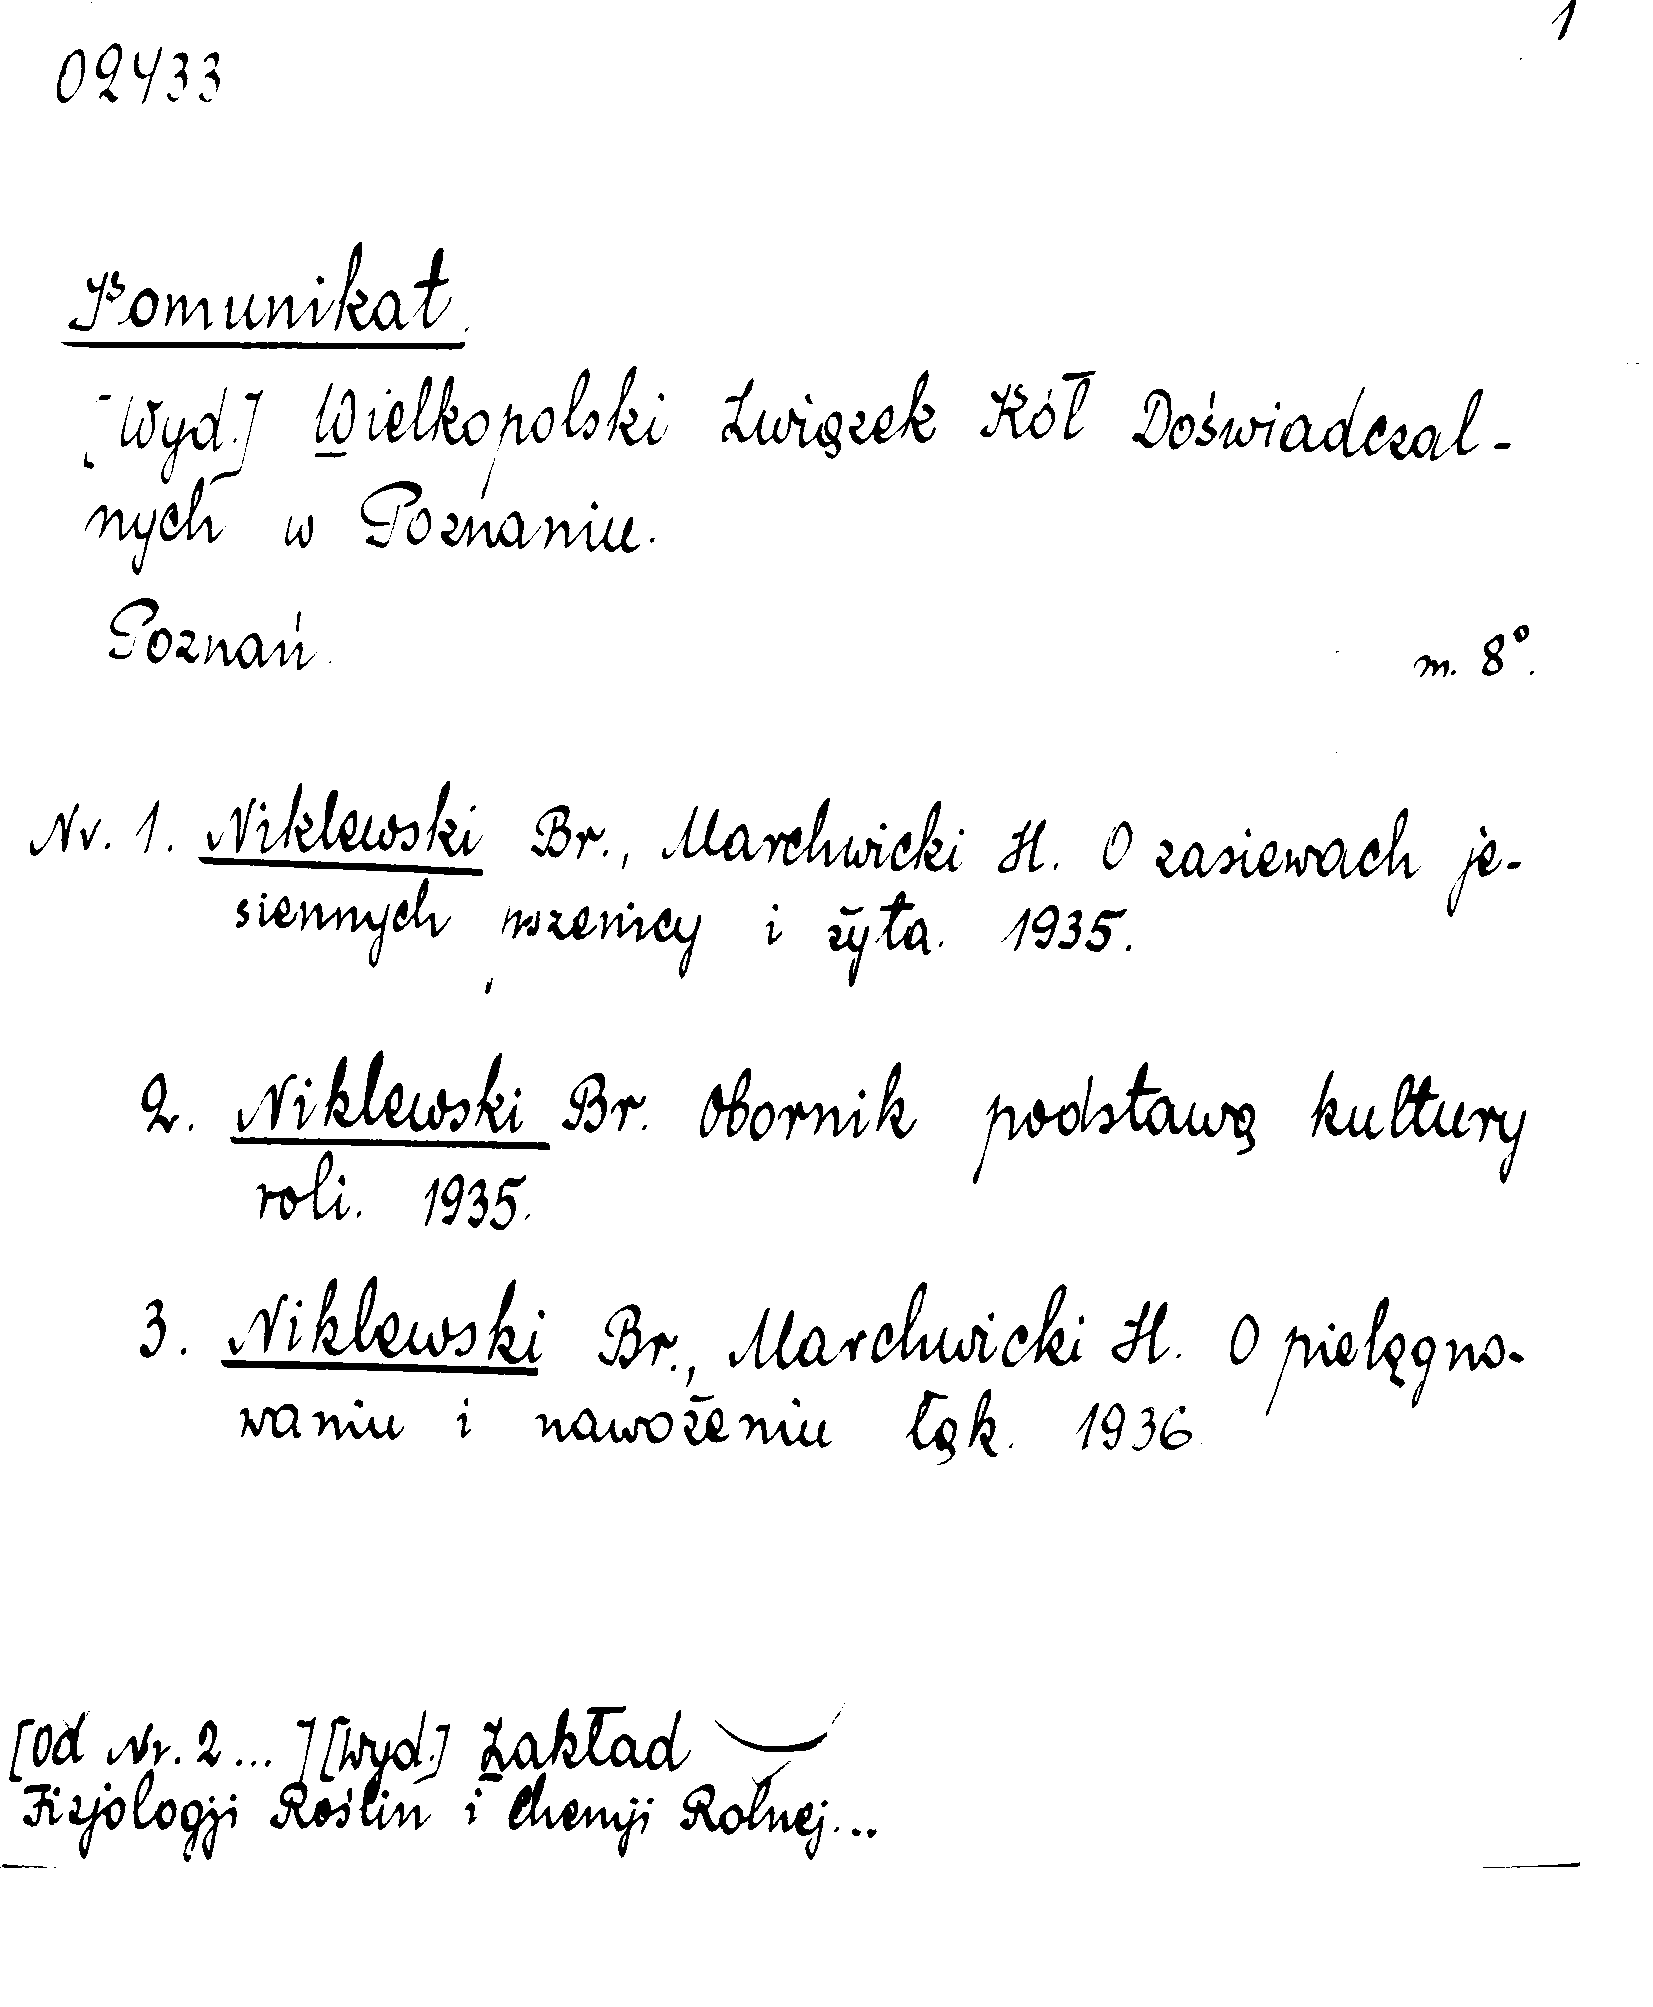 1
02433
Komunikat.
[Wyd.] Wielkopolski Związek Kół Doświadczal-
nych w Poznaniu.
Poznań.
m. 8°.
Nr. 1. Niklewski Br., Marchwicki H. O zasiewach je-
siennych pszenicy i żyta. 1935.
2. Niklewski Br. Obornik podstawą kultury
roli. 1935.
3. Niklewski Br., Marchwicki H. O pielęgno-
waniu i nawożeniu łąk. 1936
[Od Nr. 2 ... ] [Wyd.] Zakład
Fizjologji Roślin i Chemji Rolnej...